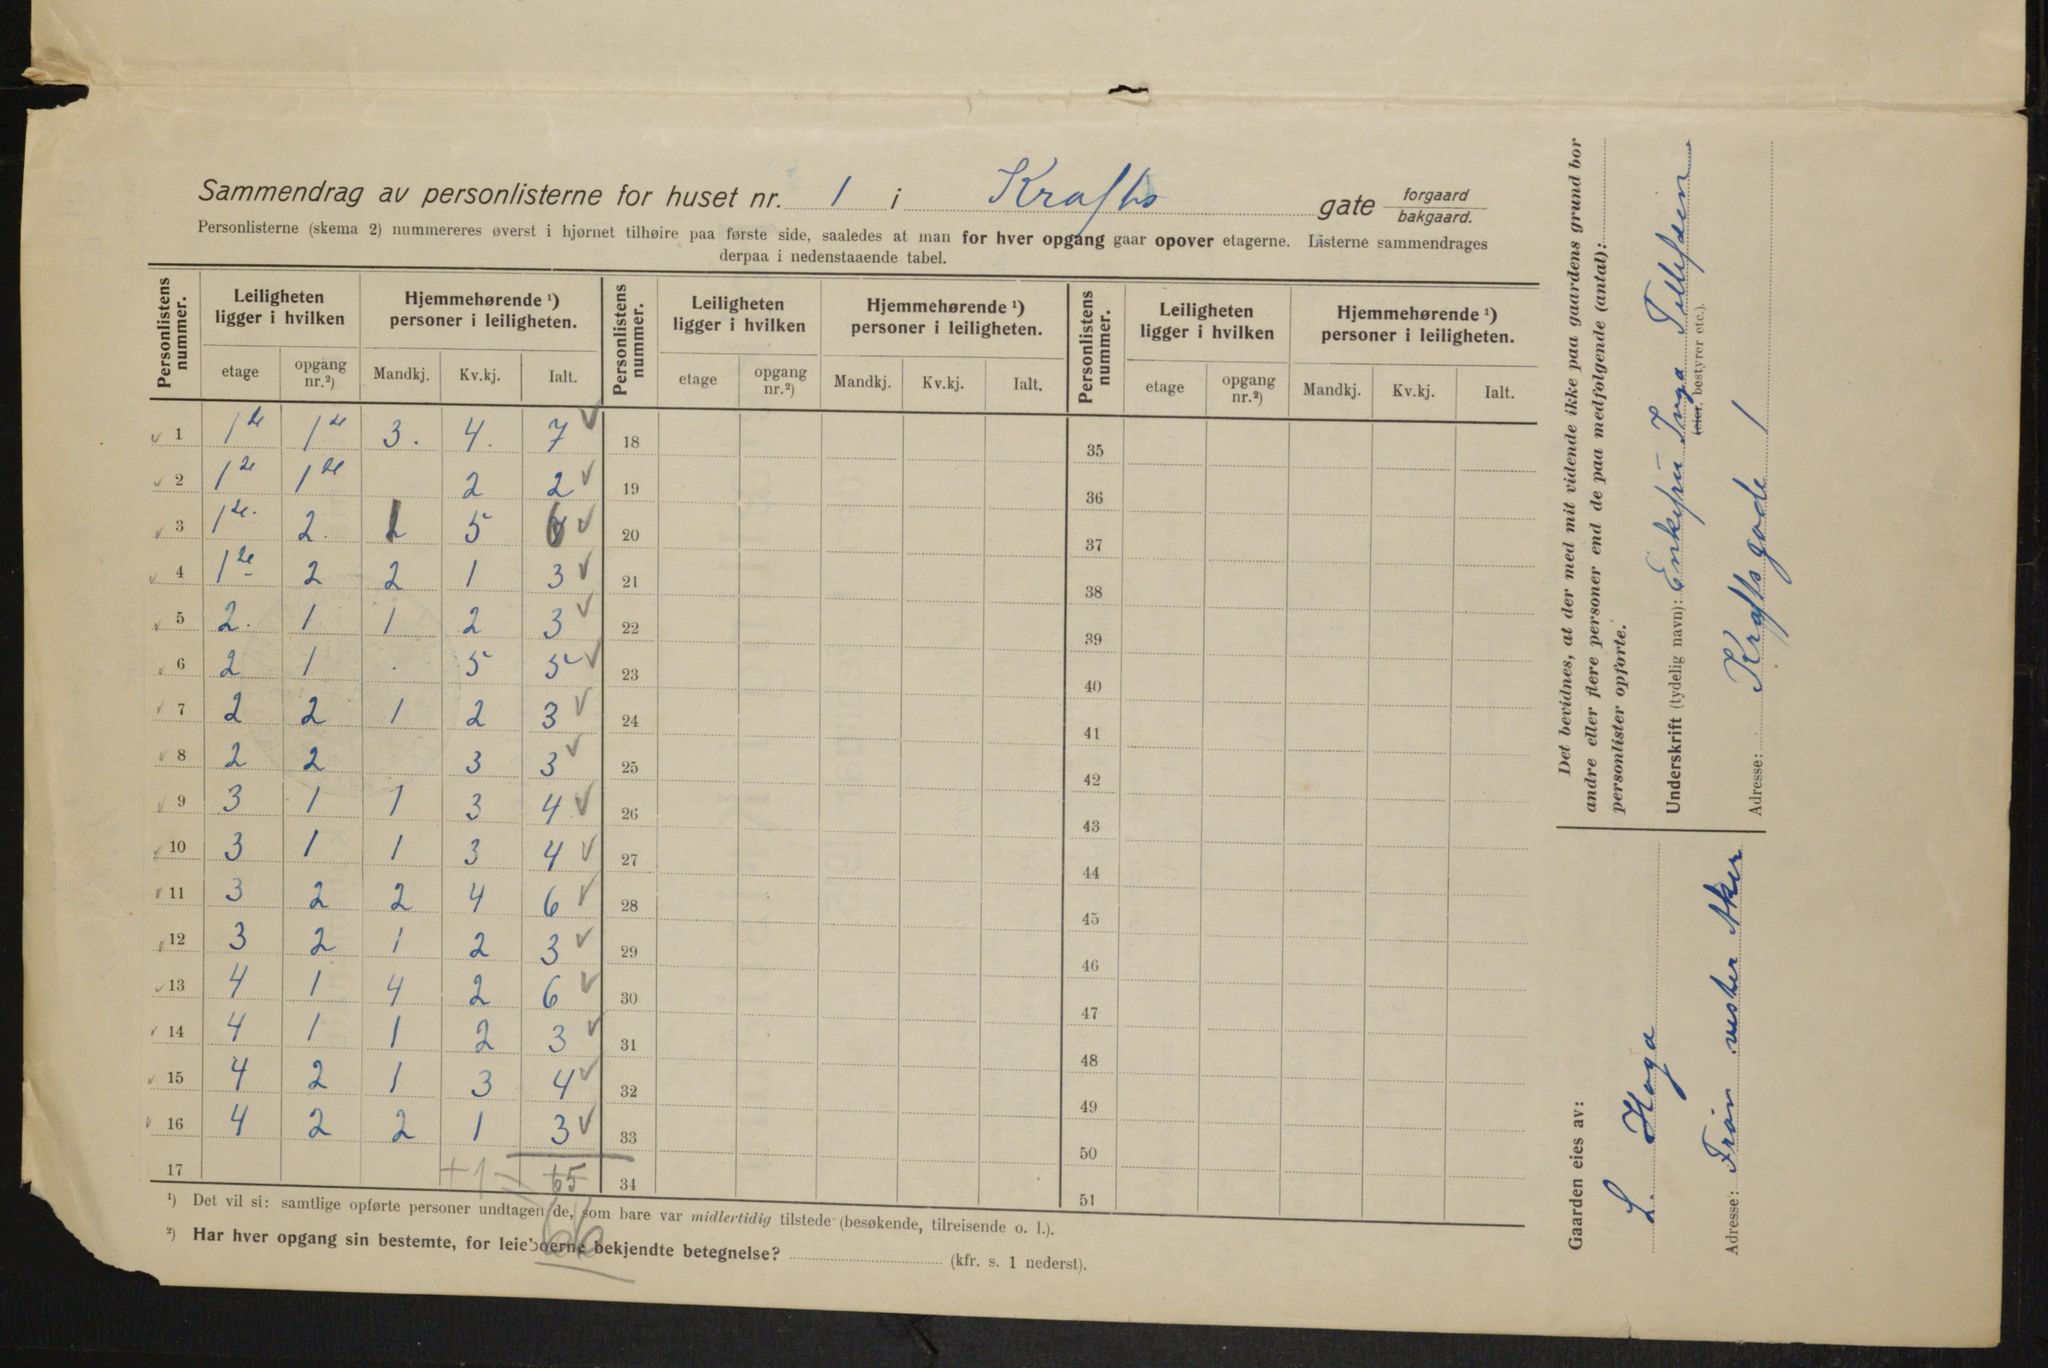 Sammendrag av personlisterne for huset nr. 1 i Krafts gate forgaard bakgaard.
Personlisterne (skema 2) nummereres øverst i hjørnet tilhøire paa første side, saaledes at man for hver opgang gaar opover etagerne. Listerne sammendrages
derpaa i nedenstaaende tabel.
Personlistens nummer. Leiligheten ligger i hvilken Hjemmehørende ¹) personer i leiligheten. Personlistens nummer. Leiligheten ligger i hvilken Hjemmehørende ¹) personer i leiligheten. Personlistens nummer. Leiligheten ligger i hvilken Hjemmehørende ¹) personer i leiligheten.
etage opgang nr.²) Mandkj. Kv.kj. Ialt. etage opgang nr.²) Mandkj. Kv.kj. Ialt. etage opgang nr.²) Mandkj. Kv.kj. Ialt.
1 1ste 1ste 3. 4. 7 ✓ 18 35
2 1ste 1ste 2 2 ✓ 19 36
3 1ste. 2. 1 5 6 ✓ 20 37
4 1ste 2 2 1 3 ✓ 21 38
5 2. 1 1 2 3 ✓ 22 39
6 2 1 . 5 5 ✓ 23 40
7 2 2 1 2 3 ✓ 24 41
8 2 2 3 3 ✓ 25 42
9 3 1 1 3 4 ✓ 26 43
10 3 1 1 3 4 ✓ 27 44
11 3 2 2 4 6 ✓ 28 45
12 3 2 1 2 3 ✓ 29 46
13 4 1 4 2 6 ✓ 30 47
14 4 1 1 2 3 ✓ 31 48
15 4 2 1 3 4 ✓ 32 49
16 4 2 2 1 3 ✓ 33 50
17 +1 = 65 34 51
66
¹) Det vil si: samtlige opførte personer undtagen de, som bare var midlertidig tilstede (besøkende, tilreisende o. l.).
²) Har hver opgang sin bestemte, for leieboerne bekjendte betegnelse? (kfr. s. 1 nederst).
Det bevidnes, at der med mit vidende ikke paa gaardens grund bor
andre eller flere personer end de paa medfølgende (antal):
personlister opførte.
Underskrift (tydelig navn): Enkefru Inga Tollefsen
(eier, bestyrer etc.).
Adresse: Kraftsgade 1
Gaarden eies av:
L. Haga
Adresse: Frøen vestre Aker